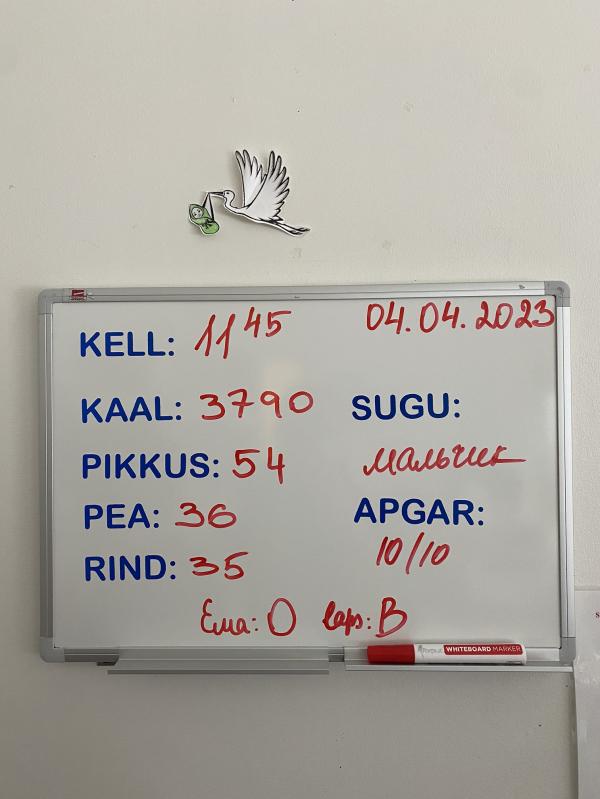 04.04.2023
KELL: 11 45
KAAL: 3790
SUGU:
мальчик
PIKKUS: 54
PEA: 36
APGAR:
10/10
RIND: 35
Ema: O laps: B
WHITEBOARD MARKER